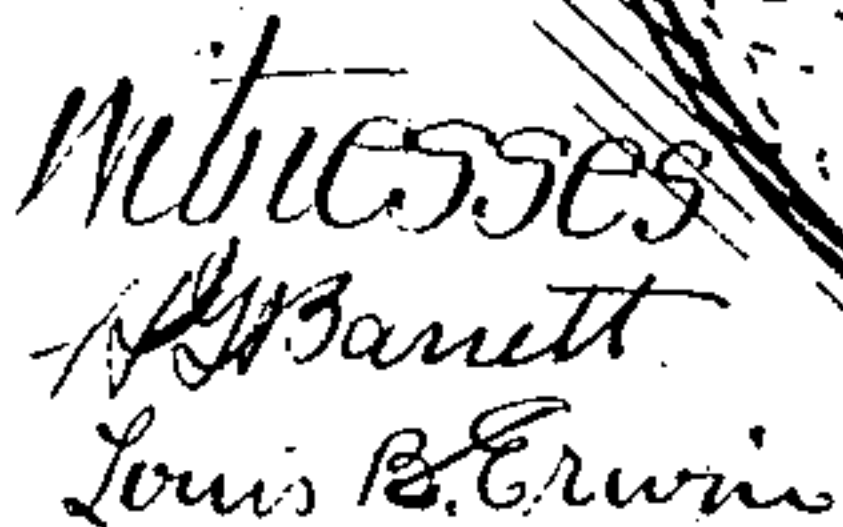 Witnesses
Barrett
Louis B. Erwin